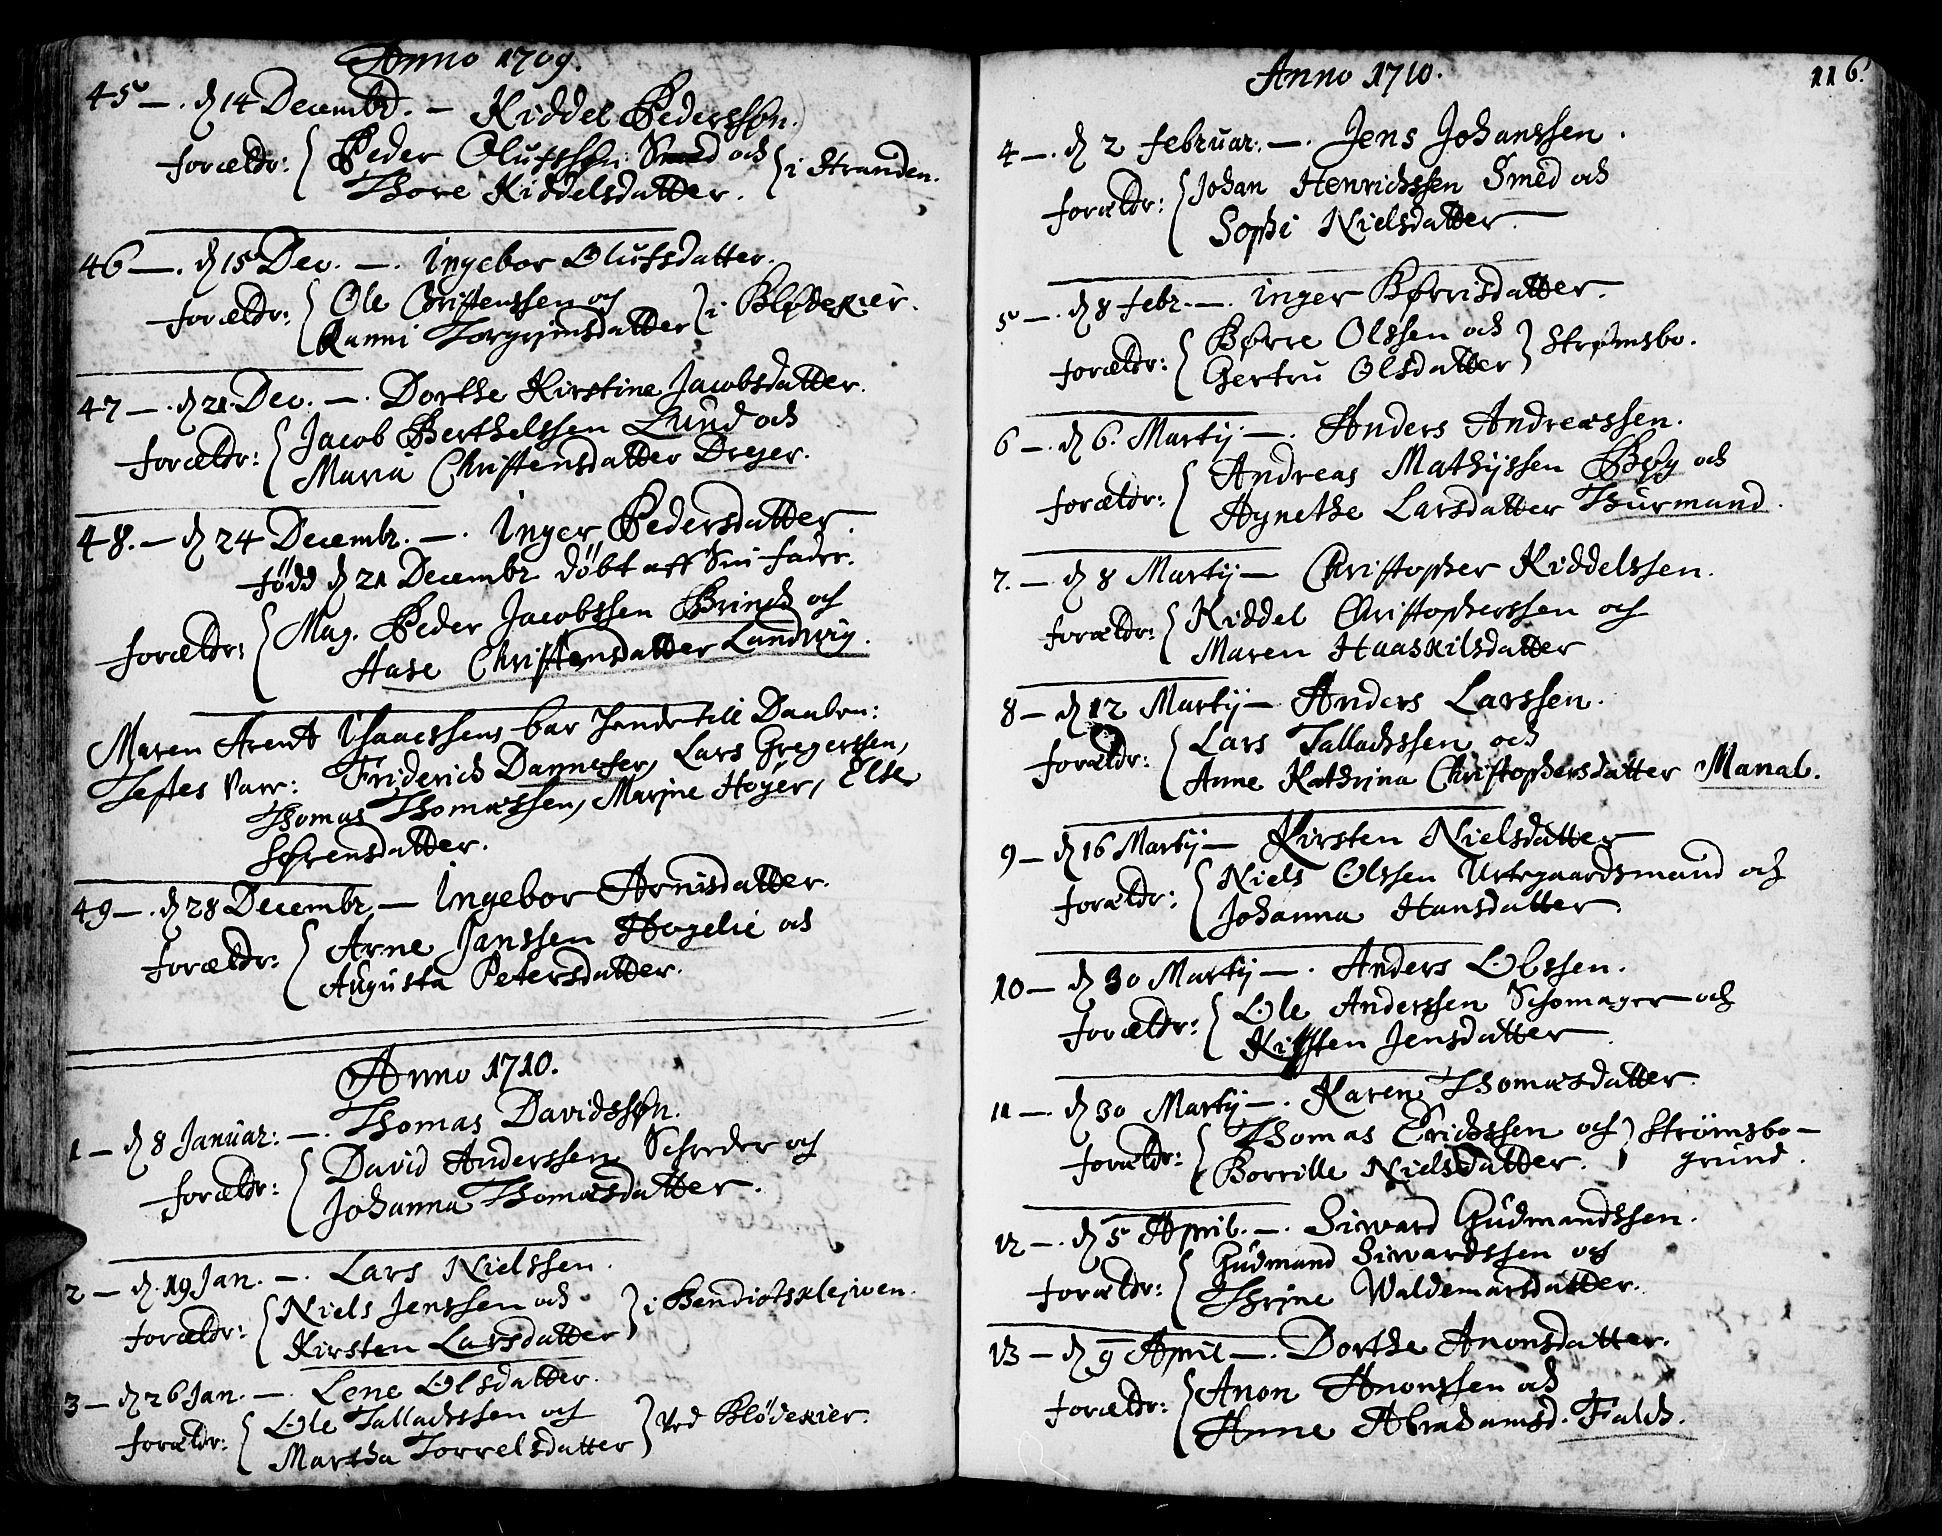 Anno 1709.
45 —. d 14 Decembr. — Kiddel Pederssøn.
forældr: Peder Olufssøn Smed och
Thore Kiddelsdatter. i Stranden.
46 —. d 15 Dec. —. Ingebor Olufsdatter.
forældr: Ole Christenssen og
Ranni Torgrimsdatter i Blødekier.
47 —. d 21 Dec. —. Dorthe Kirstine Jacobsdatter.
forældr: Jacob Berthelssen Lund och
Maria Christensdatter Dreyer.
48. — d 24 Decembr. —. Inger Pedersdatter.
född d 21 Decembr döbt aff Sin fader.
forældr: Mag. Peder Jacobssen Brinch og
Hase Christensdatter Landwig.
Maren Arent Isaacssens bar hende till Daaben:
Testes Varr: Friderich Dannefer, Lars Gregerssen,
Thomas Thomæssen, Marine Hoyer, Else
Sørensdatter.
49 —. d 28 Decembr — Ingebor Arnisdatter.
forældr: Arne Janssen Hogelie och
Augusta Petersdatter.
Anno 1710.
1 — d 8 Januar: —. Thomas Davidssøn.
forældr: David Anderssen Schreder og
Johanna Thomæsdatter.
2 — d. 19 Jan. —. Lars Nielssen.
forældr: Niels Jenssen och
Kirsten Larsdatter i Bendictsklejwen.
3 — d 26 Jan. —. Lene Olsdatter.
forældr: Ole Talladssen og
Martha Torrelsdatter ved Blødekier.
Anno 1710.
116.
4 —. d 2 februar: —. Jens Johanssen.
forældr: Johan Henrichssen Smed och
Sophi Nielsdatter
5 —. d 8 febr. —. inger Børrisdatter.
forældr: Børre Olssen och
Gertru Olsdatter Strømsbo.
6 —. d 6. Martij —. Anders Andreæssen.
forældr: Andreas Mathijssen Bøy och
Agnethe Larsdatter Thurmand.
7. — d 8 Martij — Christopher Kiddelssen.
forældr: Kiddel Christopherssen og
Maren Haaskilsdatter
8 — d 12 Martij — Anders Larssen.
forældr: Lars Talladssen och
Anne Kathrina Christophersdatter Manal.
9 — d 16 Martij — Kirsten Nielsdatter
forældr: Niels Olssen Urtegaardsmand og
Johanna Hansdatter
10 — d 30 Martij —. Anders Olssen.
forældr: Ole Anderssen Schomager och
Kirsten Jensdatter
11 —. d 30 Martij —. Karen Thomæsdatter
forældr: Thomas Erichssen og Strömsbo-
Borrille Nielsdatter. grund.
12 —. d 5 April. —. Siward Gudmandssen.
forældr: Gudmand Siwardssen og
Thrine Waldemarsdatter.
13 — d 9 April —. Dorthe Anonsdatter.
forældr: Anon Anonssen och
Anne Abrahamsd. Falch.